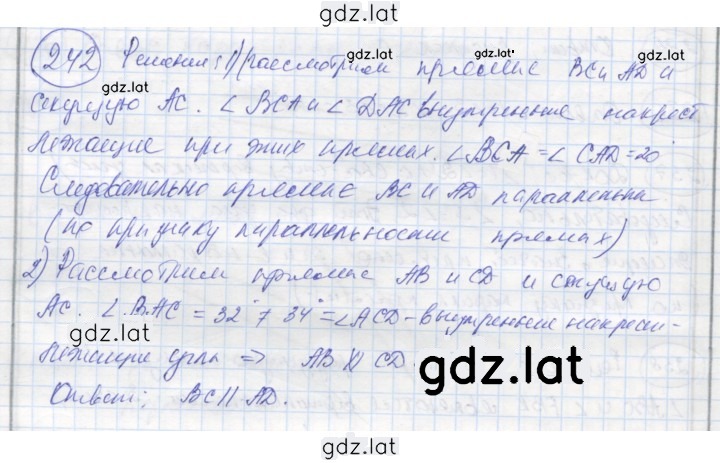 gdz.lat
242 Решение: 1) рассмотрим прямые BC и AD и
gdz.lat gdz.lat
секущую AC. ∠BCA и ∠DAC внутренние накрест
лежащие при этих прямых. ∠BCA = ∠CAD = 20°
gdz.lat
Следовательно прямые BC и AD параллельны
(по признаку параллельности прямых)
gdz.lat
2) Рассмотрим прямые AB и CD и секущую
AC. ∠BAC = 32° ≠ 34° = ∠ACD - внутренние накрест-
лежащие углы => AB ∦ CD
gdz.lat gdz.lat
Ответ: BC || AD.
gdz.lat